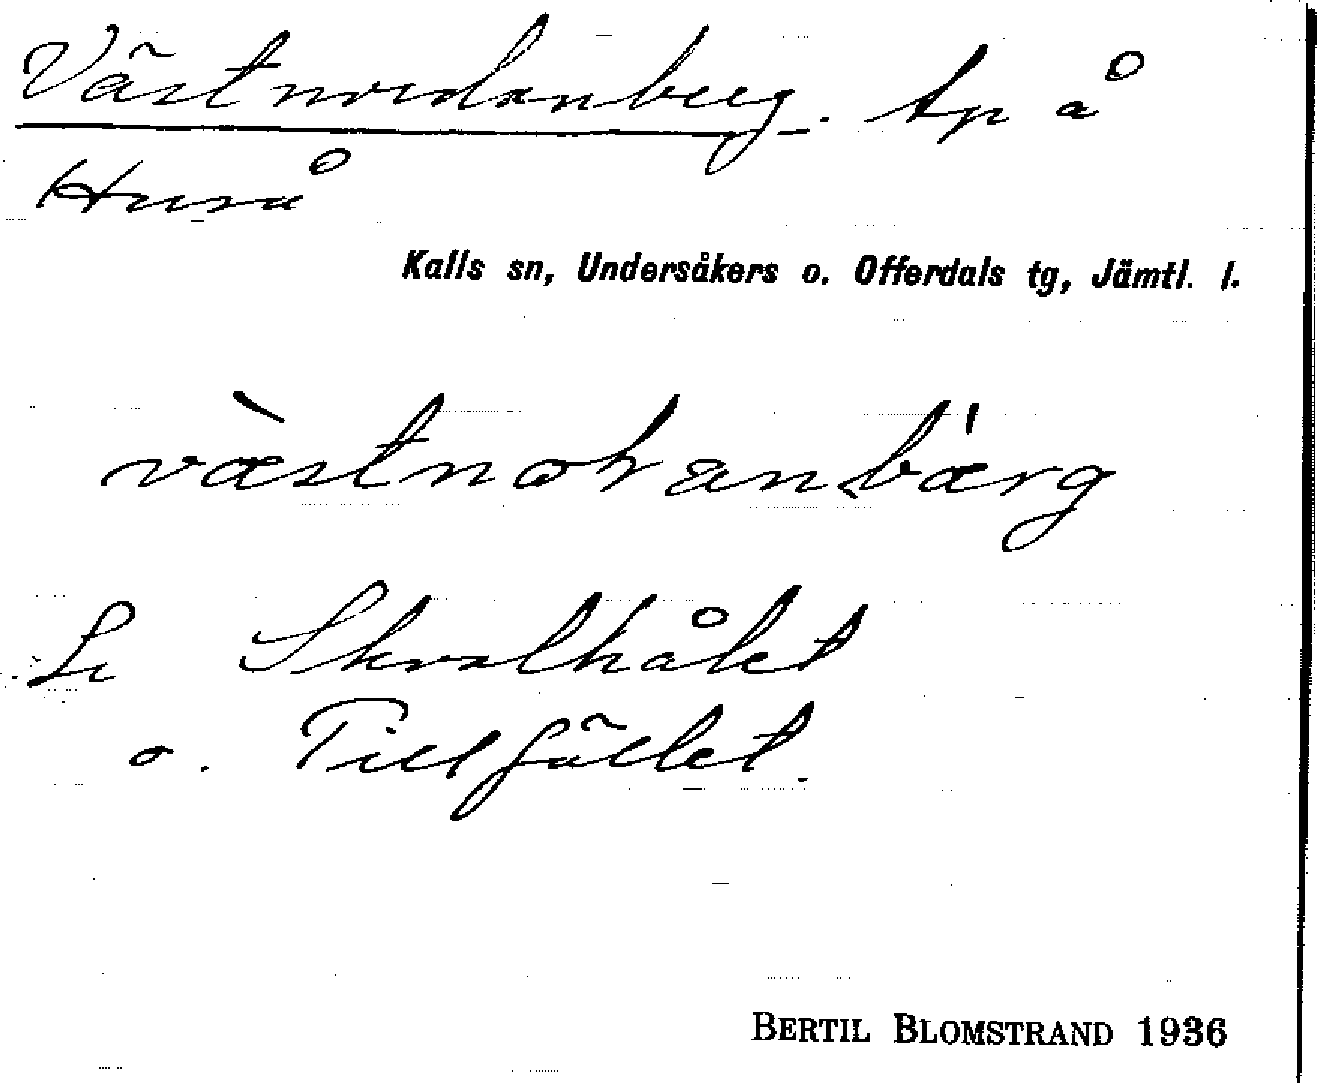 Västnordanberg. tp å
Huså
Kalls sn, Undersåkers o. Offerdals tg, Jämtl. l.
Se Skvalhålet
o. Tillfället.
BERTIL BLOMSTRAND 1936